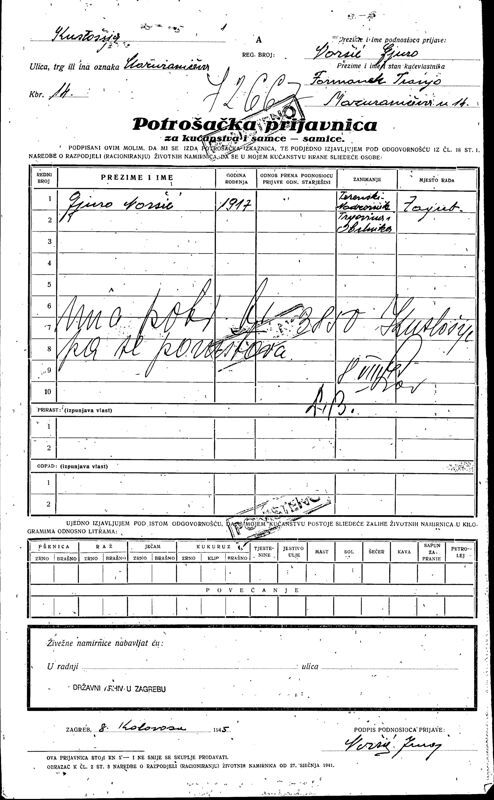 Kustošija
A
Prezime i ime podnosioca prijave:
REG. BROJ:
Voršić Gjuro
Ulica, trg ili ina oznaka Mažuranićeva
Prezime i ime i stan kućevlastnika
Kbr. 14.
7266
Mažuranićeva u. 14
Potrošačka prijavnica
za kućanstva i samce — samice.
POTPISANI OVIM MOLIM, DA MI SE IZDA POTROŠAČKA ISKAZNICA, TE PODJEDNO IZJAVLJUJEM POD ODGOVORNOŠĆU IZ ČL. 18 ST. 1.
NAREDBE O RAZPODJELI (RACIONIRANJU) ŽIVOTNIH NAMIRNICA, DA SE U MOJEM KUĆANSTVU HRANE SLJEDEĆE OSOBE:
REDNI BROJ
PREZIME I IME
GODINA ROĐENJA
ODNOS PREMA PODNOSIOCU PRIJAVE ODN. STARJEŠINI
ZANIMANJE
MJESTO RADA
1 Gjuro Voršić 1917 Zagreb
2
3
4
5
6
7 3850 Kustošija
8
9
10
PRIRAST: (izpunjava vlast)
1
2
ODPAD: (izpunjava vlast)
1
2
PONIŠTENO
UJEDNO IZJAVLJUJEM POD ISTOM ODGOVORNOŠĆU, DA U MOJEM KUĆANSTVU POSTOJE SLJEDEĆE ZALIHE ŽIVOTNIH NAMIRNICA U KILO-
GRAMIMA ODNOSNO LITRAMA:
PŠENICA RAŽ JEČAM KUKURUZ TJESTE-NINE JESTIVO ULJE MAST SOL ŠEĆER KAVA SAPUN ZA PRANJE PETRO-LEJ
ZRNO BRAŠNO ZRNO BRAŠNO ZRNO BRAŠNO ZRNO KLIP BRAŠNO
POVEĆANJE
Živežne namirnice nabavljat ću:
U radnji ulica
DRŽAVNI ARHIV U ZAGREBU
ZAGREB, 8. Kolovoza 1945
POTPIS PODNOSIOCA PRIJAVE:
Voršić Gjuro
OVA PRIJAVNICA STOJI KN 1·— I NE SMIJE SE SKUPLJE PRODAVATI.
OBRAZAC K ČL. 2 ST. 3 NAREDBE O RAZPODJELI (RACIONIRANJU) ŽIVOTNIH NAMIRNICA OD 27. SIEČNJA 1941.